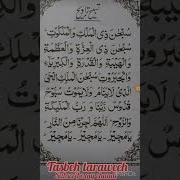 تسبیح تراویح
سُبْحٰنَ ذِی الْمُلْكِ وَالْمَلَكُوْتِ۔
سُبْحٰنَ ذِی الْعِزَّةِ وَالْعَظَمَةِ
وَالْهَيْبَةِ وَالْقُدْرَةِ وَالْكِبْرِيَآءِ
وَالْجَبَرُوْتِ سُبْحٰنَ الْمَلِكِ الْحَیِّ
الَّذِی لَا يَنَامُ وَلَا يَمُوْتُ سُبُّوْحٌ
قُدُّوْسٌ رَبُّنَا وَ رَبُّ الْمَلٰئِكَةِ
وَالرُّوْحِ اَللّٰهُمَّ اَجِرْنَا مِنَ النَّارِ
يَا مُجِيْرُ۔ يَا مُجِيْرُ۔ يَا مُجِيْرُ
Tasbeh taraweeh